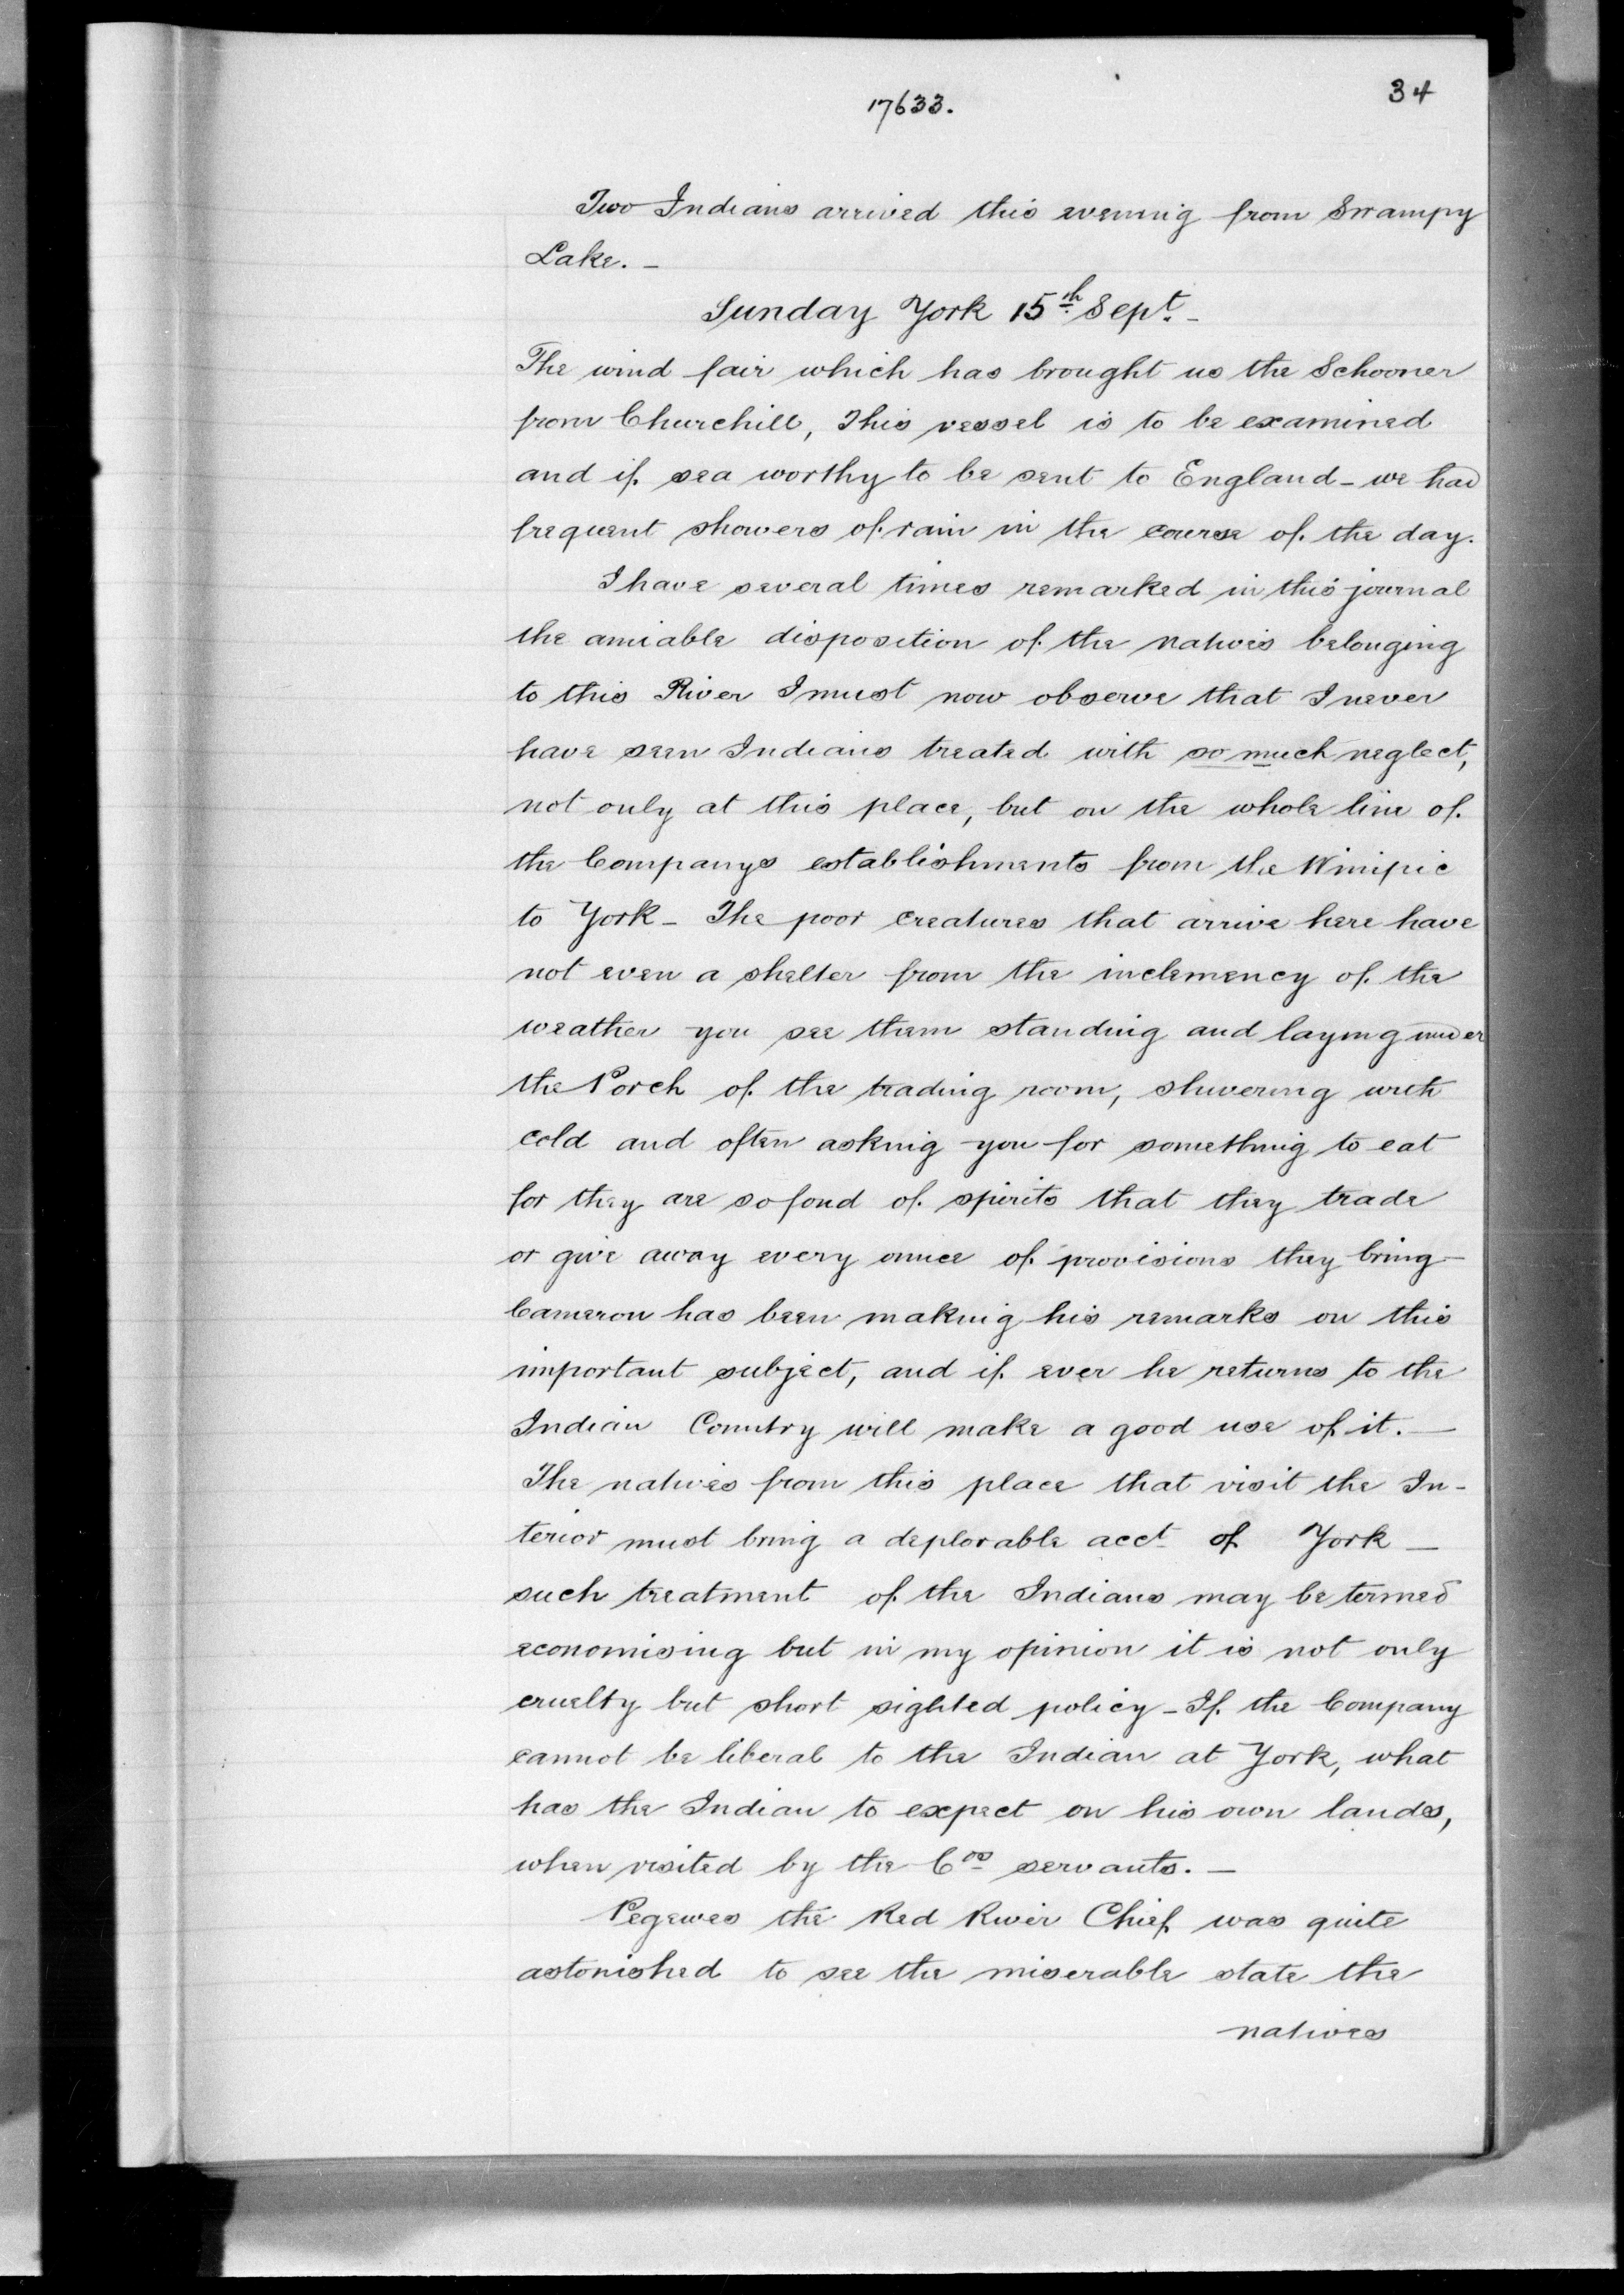 17633.
34
Two Indians arrived this evening from Swampy
Lake. -
Sunday York 15th Sept. -
The wind fair which has brought us the Schooner
from Churchill, This vessel is to be examined
and if sea worthy to be sent to England - we had
frequent showers of rain in the course of the day.
I have several times remarked in this journal
the amiable disposition of the natives belonging
to this River I must now observe that I never
have seen Indians treated with so much neglect,
not only at this place, but on the whole line of
the Companys establishments from the Winipic
to York - The poor creatures that arrive here have
not even a shelter from the inclemency of the
weather you see them standing and laying under
the Porch of the trading room, shivering with
cold and often asking you for something to eat
for they are so fond of spirits that they trade
or give away every ounce of provisions they bring -
Cameron has been making his remarks on this
important subject, and if ever he returns to the
Indian Country will make a good use of it. —
The natives from this place that visit the In-
terior must bring a deplorable acct of York —
such treatment of the Indians may be termed
economising but in my opinion it is not only
cruelty but short sighted policy - If the Company
cannot be liberal to the Indian at York, what
has the Indian to expect on his own lands,
when visited by the Cos servants. —
Pegewes the Red River Chief was quite
astonished to see the miserable state the
natives